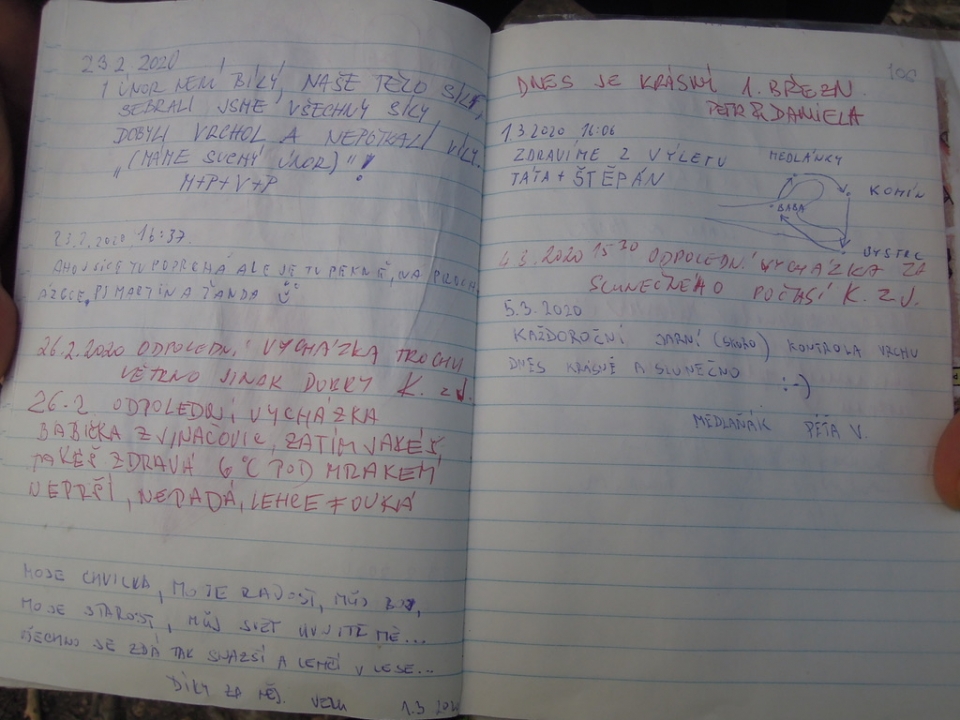 23.2 2020
I ÚNOR NENÍ BÍLÝ, NAŠE TĚLO SÍLÍ,
SEBRALI JSME VŠECHNY SÍLY,
DOBYLI VRCHOL A NEPOTKALI VÍLY.
"(MÁME SUCHÝ ÚNOR)"!
M+P+V+P
23.2.2020 16:37.
AHOJ SICE TU POPRCHÁ ALE JE TU PEKNĚ, NA PROCH
ÁZCE, PJ MARTIN A
26.2.2020 ODPOLEDNÍ VYCHÁZKA TROCHU
VĚTRNO JINAK DOBRÝ K. z J.
26.2 ODPOLEDNÍ VYCHÁZKA
BABIČKA Z VINAČOVIC, ZATÍM JAKEŠ,
TAKEŠ ZDRAVÁ 6°C POD MRAKEM
NEPRŠÍ, NEPADÁ, LEHCE FOUKÁ
MOJE CHVILKA, MOJE RADOST, MŮJ
MOJE STAROST, MŮJ SVĚT MĚ...
VŠECHNO SE ZDÁ TAK SNAZŠÍ A LEHČÍ V LESE...
DÍKY ZA NĚJ. 1.3 2020
108
DNES JE KRÁSNÝ 1. BŘEZN.
PETR & DANIELA
1.3 2020 16:06
ZDRAVÍME Z VÝLETU
TÁTA + ŠTĚPÁN
MEDLÁNKY
KOMÍN
BABA
BYSTRC
4.3. 2020 15 30 ODPOLEDNÍ VYCHÁZKA ZA
SLUNEČNÉHO POČASÍ K. z J.
5.3.2020
KAŽDOROČNÍ JARNÍ (SKORO) KONTROLA VRCHU
DNES KRÁSNĚ A SLUNEČNO :-)
MEDLAŇÁK PÉŤA V.